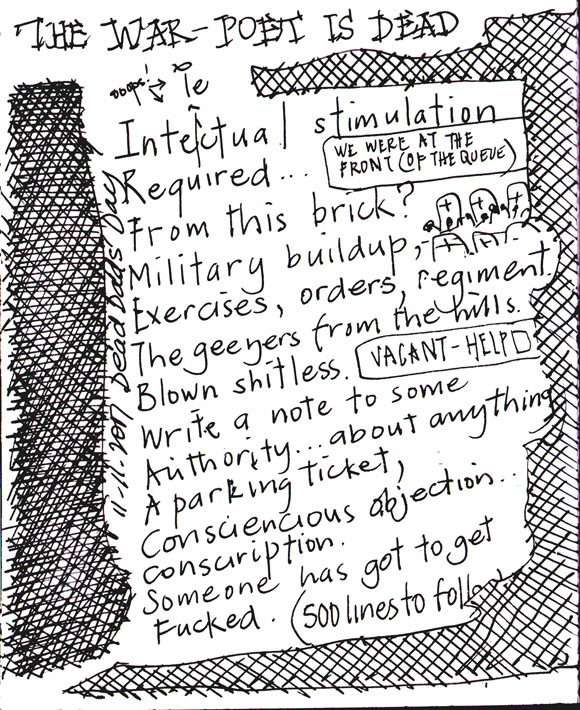 THE WAR-POET IS DEAD
ooops! le
Intelctual stimulation
WE WERE AT THE
FRONT (OF THE QUEUE)
Required...
From this brick?
Military buildup,
Exercises, orders, regiment.
The geezers from the hills.
Blown shitless.
VACANT-HELP
Write a note to some
Authority... about anything
A parking ticket,
Consciencious objection..
conscription.
Someone has got to get
Fucked. (500 lines to foll
11-11-2017 Dead Dolls Day